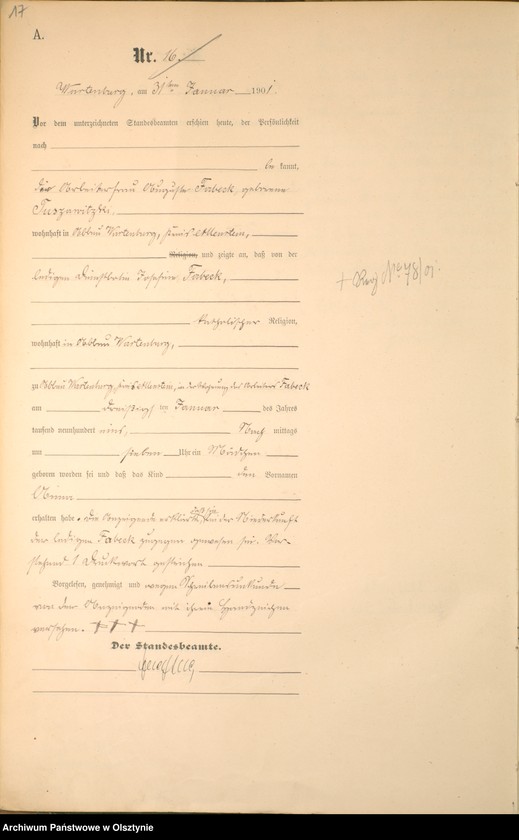 17
A.
Nr. 16.
Wartenburg, am 31ten Januar 1901.
Vor dem unterzeichneten Standesbeamten erschien heute, der Persönlichkeit
nach
be kannt,
die Arbeiterfrau Auguste Fabeck, geborene
wohnhaft in Abbau Wartenburg, Kreis Allenstein,
Religion, und zeigte an, daß von der
ledigen Dienstbotin Josefine Fabeck,
katholischer Religion,
wohnhaft in Abbau Wartenburg,
zu Abbau Wartenburg, Kreis Allenstein, in der Wohnung des Arbeiters Fabeck
am dreißigsten Januar des Jahres
tausend neunhundert eins, Nach mittags
um sieben Uhr ein Mädchen
geboren worden sei und daß das Kind den Vornamen
Anna
erhalten habe. Die Anzeigende erklärte, daß sie bei der Niederkunft
der ledigen Fabeck zugegen gewesen sei. Vor-
stehend 1 Druckwort gestrichen
Vorgelesen, genehmigt und wegen Schreibensunkunde
von der Anzeigenden mit ihrem Handzeichen
versehen. +++
Der Standesbeamte.
+ Reg No 78/01.
Archiwum Państwowe w Olsztynie